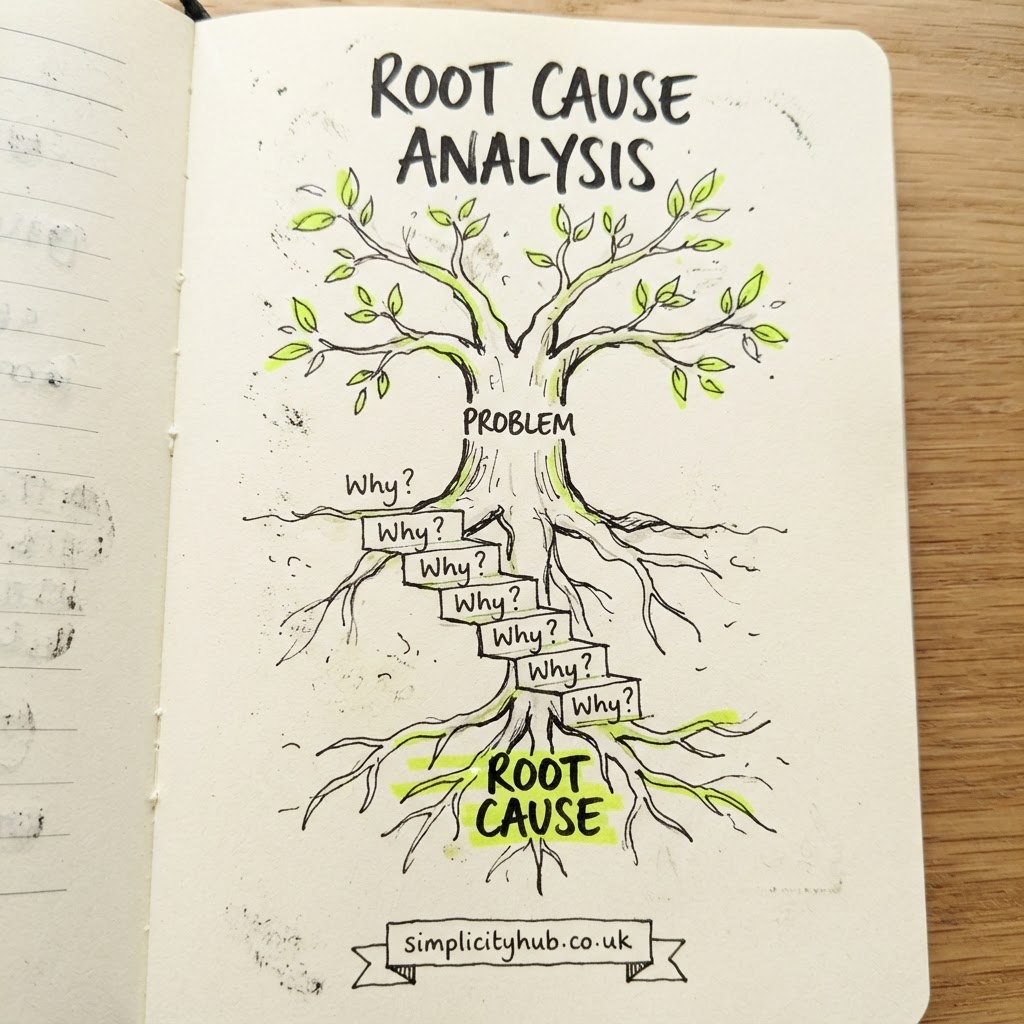 ROOT CAUSE
ANALYSIS
PROBLEM
Why?
Why?
Why?
Why?
Why?
Why?
Why?
ROOT
CAUSE
simplicityhub.co.uk